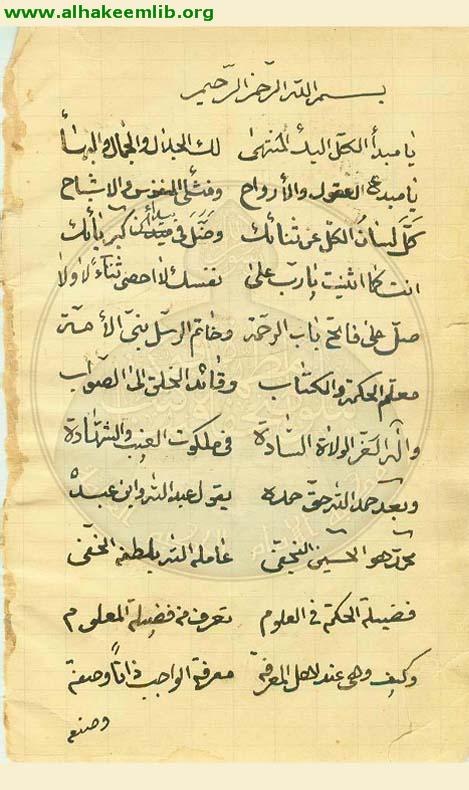 www.alhakeemlib.org
بسم الله الرحمن الرحيم
يا مبدأ الكل اليك المنتهى لك الجلال والجمال والبهاء
يا مبدع العقول والأرواح ومنشئ النفوس والاشباح
كَلَّ لسانُ الكل عن ثنائك وضَلَّ في بيداء كبريائك
انت كما اثنيت يا رب على نفسك لا احصى ثناءً لا ولا
صل على فاتح باب الرحمة وخاتم الرسل نبى الأمة
معلم الحكمة والكتاب وقائد الخلق الى الصواب
وآله الغر الولاة السادة فى ملكوت الغيب والشهادة
وبعد حمد الله حق حمده يقول عبد الله وابن عبده
محمد هو الحسين النجفي عامله الله بلطفه الخفي
فضيلة الحكمة فى العلوم تعرف من فضيلة المعلوم
وكيف وهى عند اهل المعرفة معرفة الواجب ذاتاً وصفة
وصنعه